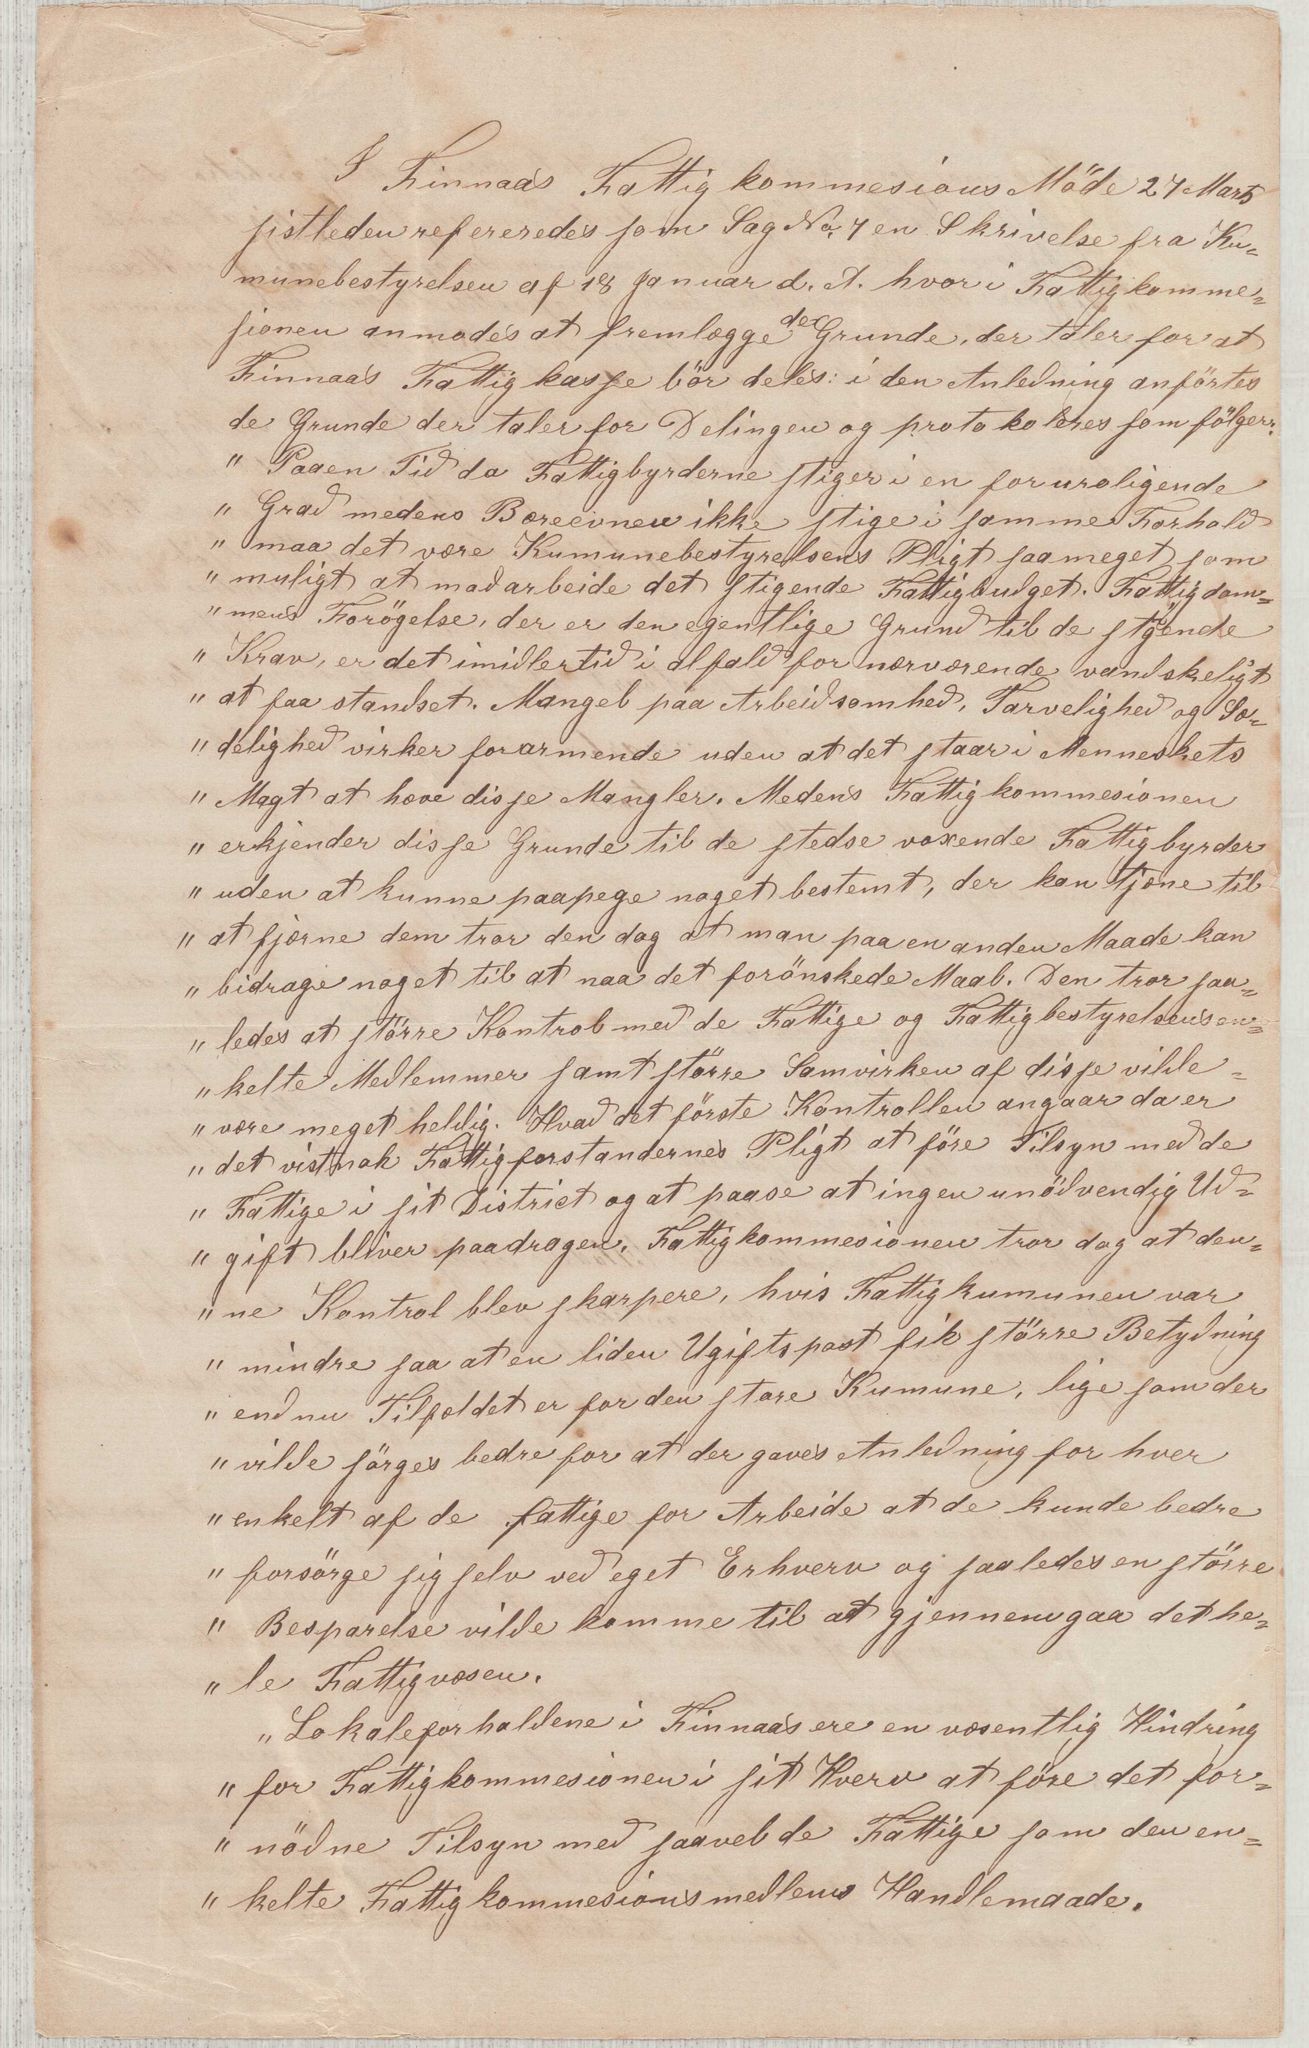 I Finnaas Fattigkommesions Möde 27 Marts
sistleden refereredes som Sag No. 7 en Skrivelse fra Ku-
munebestyrelsen af 18 Januar d. A. hvori Fattigkomme-
sionen anmodes at fremlægge de Grunde, der taler for at
Finnaas Fattigkasse bör deles: i den Anledning anförtes
de Grunde der taler for Delingen og protokoleres som fölger:
" Paa en Tid da Fattigbyrderne stiger i en foruroligende
" Grad medens Bæreevnen ikke stige i samme Forhold
" maa det være Kumunebestyrelsens Pligt saameget som
" muligt at modarbeide det stigende Fattigbudget. Fattigdom-
" mens Forögelse, der er den egentlige Grund til de stigende
" Krav, er det imidlertid i alfald for nærværende vandskeligt
" at faa standset. Mangel paa Arbeidsomhed, Tarvelighed og Sæ-
" delighed virker forarmende uden at det staar i Menneskets
" Magt at hæve disse Mangler. Medens Fattigkommesionen
" erkjender disse Grunde til de stedse voxende Fattigbyrder
" uden at kunne paapege noget bestemt, der kan tjæne til
" at fjærne dem tror den dog at man paa en anden Maade kan
" bidrage noget til at naa det forönskede Maal. Den tror saa-
" ledes at större Kontrol med de Fattige og Fattigbestyrelsens en-
" kelte Medlemmer samt större Samvirken af disse vilde
" være meget heldig. Hvad det förste Kontrollen angaar da er
" det vistnok Fattigforstandernes Pligt at före Tilsyn med de
" Fattige i sit District og at paase at ingen unödvendig Ud-
" gift bliver paadragen. Fattigkommesionen tror dog at den-
" ne Kontrol blev skarpere, hvis Fattigkumunen var
" mindre saa at en liden Ugiftspost fik större Betydning
" end nu Tilfældet er for den store Kumune, lige som der
" vilde sörges bedre for at der gaves Anledning for hver
" enkelt af de fattige for Arbeide at de kunde bedre
" forsörge sig selv ved eget Erhverv og saaledes en större
" Besparelse vilde komme til at gjennemgaa det he-
" le Fattigvæsen.
" Lokaleforholdene i Finnaas ere en væsentlig Hindring
" for Fattigkommesionen i sit Hverv at före det for-
" nödne Tilsyn med saavel de Fattige som den en-
" kelte Fattigkommesionsmedlems Handlemaade.